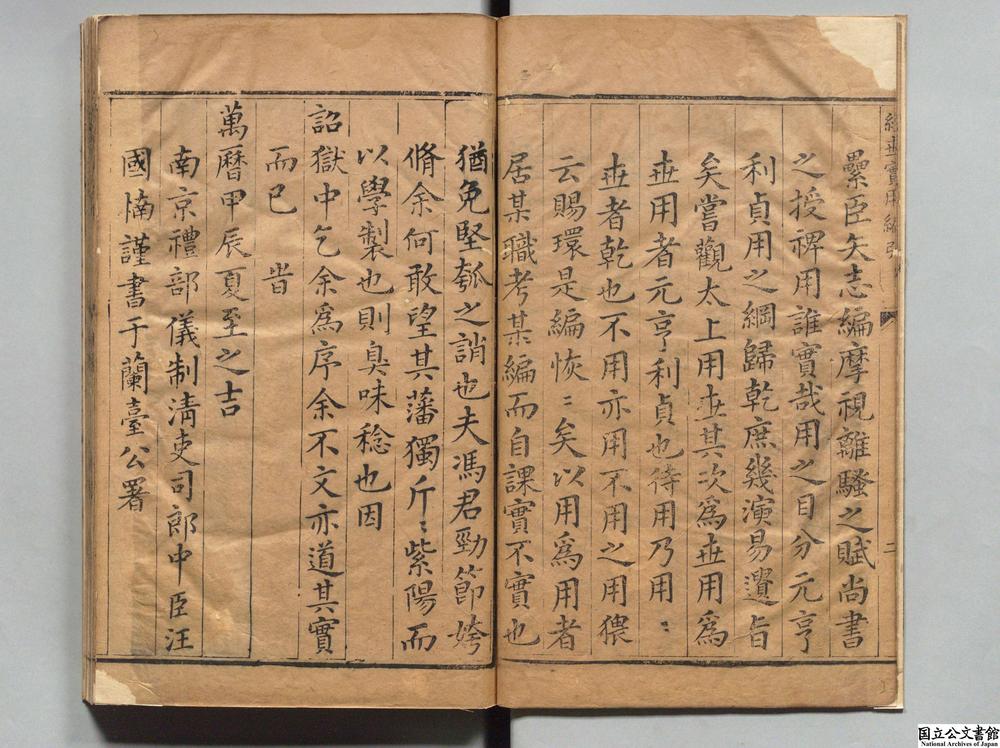 經世實用編引
二
纍臣矢志編摩視離騷之賦尚書
之授裨用誰實哉用之目分元亨
利貞用之綱歸乾庶幾演易遺旨
矣嘗觀太上用世其次為世用為
世用者元亨利貞也待用乃用〻
世者乾也不用亦用不用之用猥
云賜環是編恢〻矣以用為用者
居某職考某編而自課實不實也
猶免堅瓠之誚也夫馮君勁節姱
脩余何敢望其藩獨斤〻紫陽而
以學製也則臭味稔也因
詔獄中乞余為序余不文亦道其實
而已 旹
萬曆甲辰夏至之吉
南京禮部儀制清吏司郎中臣汪
國楠謹書于蘭臺公署
国立公文書館
National Archives of Japan